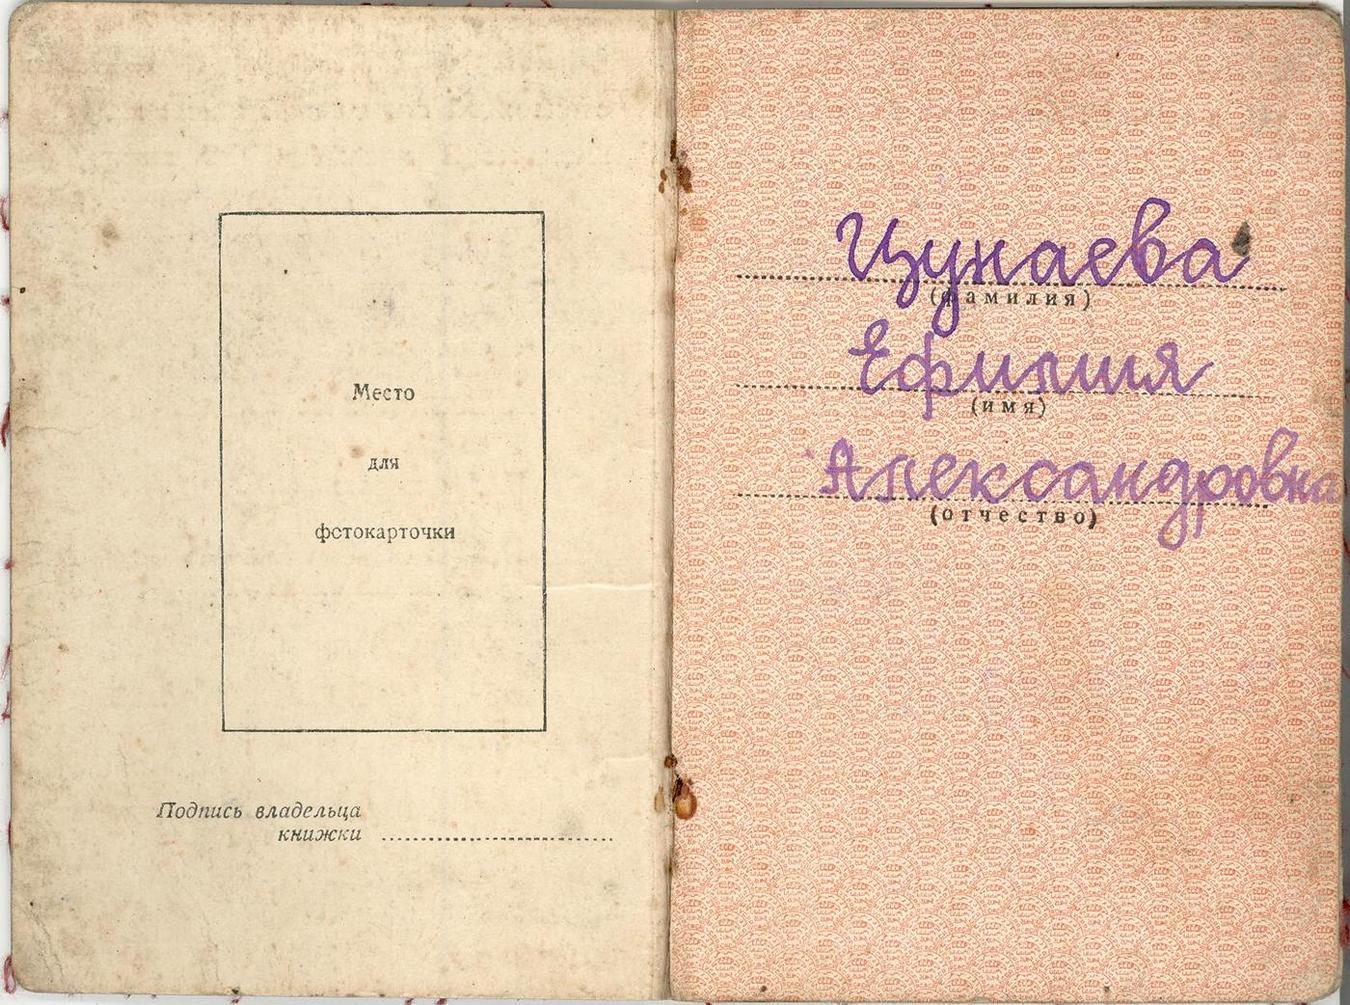 Место
для
фотокарточки
Подпись владельца
книжки
Цунаева
(фамилия)
Ефимия
(имя)
Александровна
(отчество)